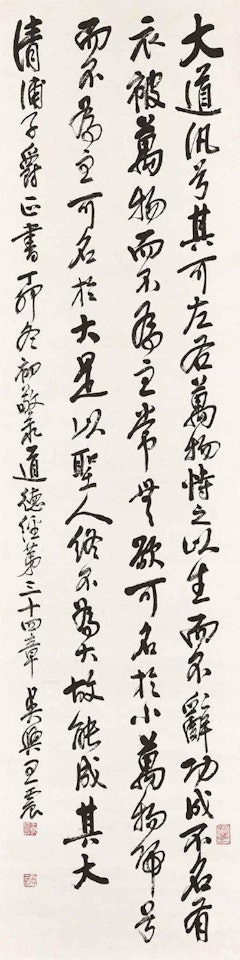 大道汎兮其可左右萬物恃之以生而不辭功成不名有
衣被萬物而不為主常無欲可名於小萬物歸焉
而不為主可名於大是以聖人終不為大故能成其大
清浦子爵正書丁卯冬初敬录道德經第三十四章吳興王震